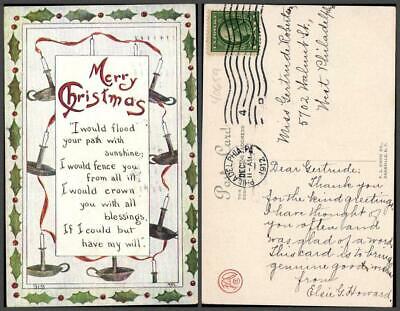 Merry
Christmas
"I would flood
your path with
sunshine;
I would fence you
from all ill;
I would crown
you with all
blessings,
If I could but
have my will".
Post Card
DEC
1912
4
Miss Gertrude
5702 Walnut St,
West Philadelphia
Dear Gertrude:
Thank you
for the kind greeting
I have thought of
you often and
was glad of a word.
This card is to bring
genuine good wishes
from
Elsie G. Howard